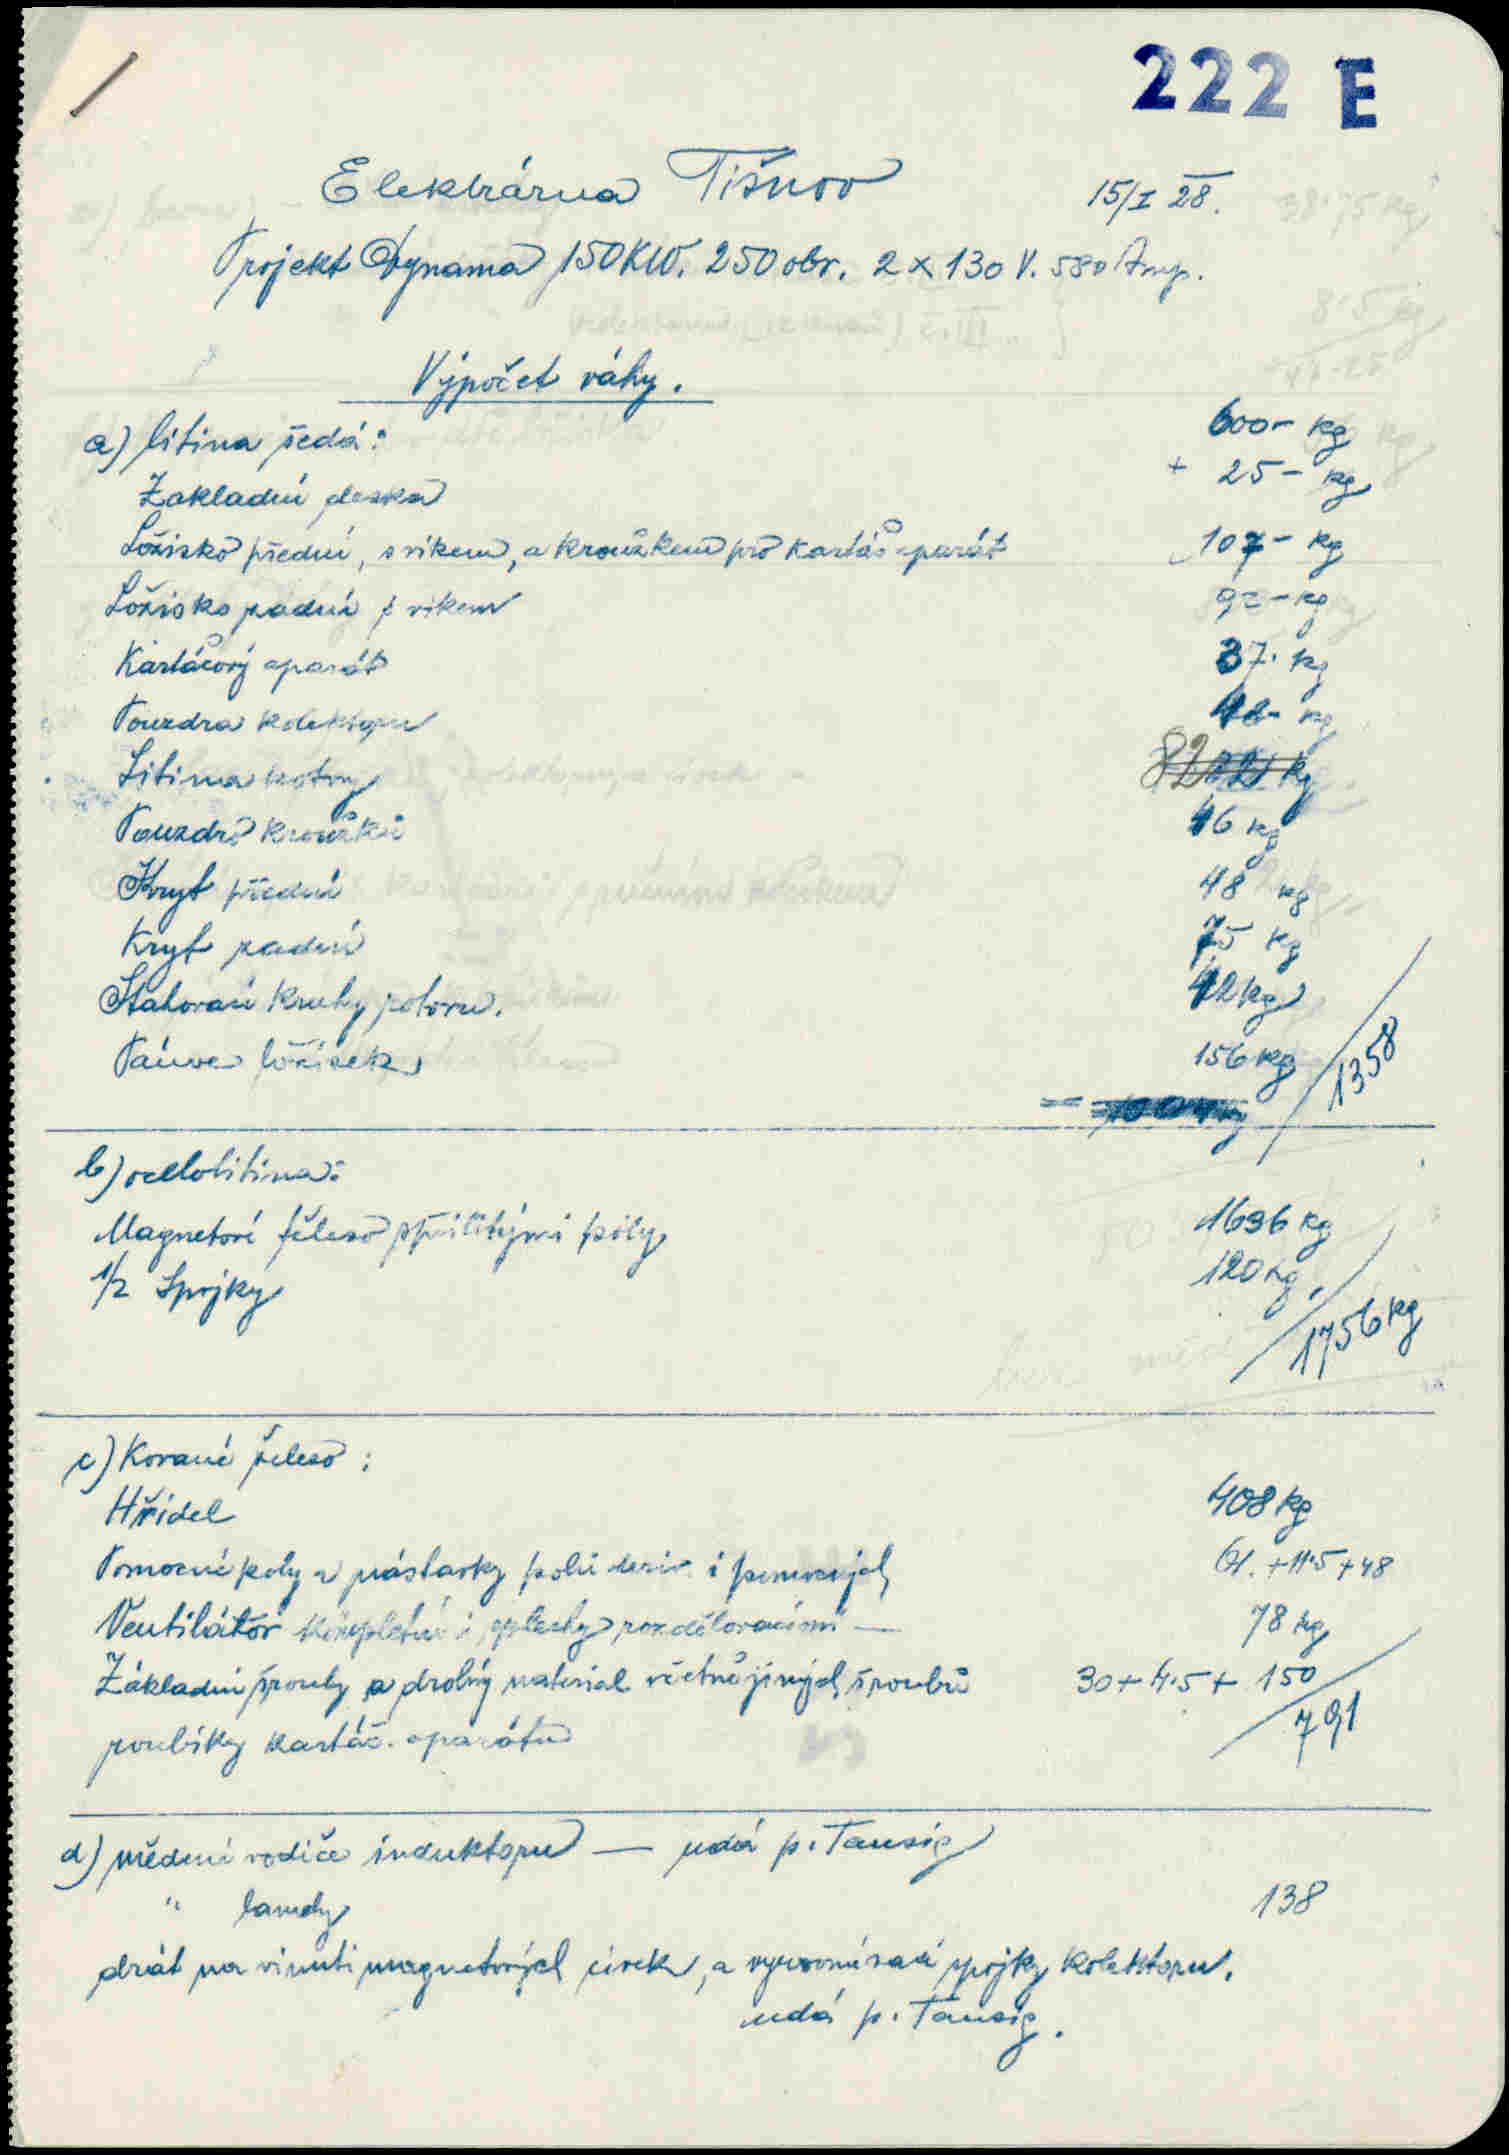 222 E
Elektrárna Tišnov 15/I 28.
Projekt Dynama 150 KW. 250 obr. 2 x 130 V. 580 Amp.
Výpočet váhy.
a) litina šedá: 600- kg
Základní deska + 25- kg
Ložisko přední, s víkem, a kroužkem pro kartáč. aparát 107- kg
Ložisko zadní s víkem 92- kg
Kartáčový aparát 37. kg
Pouzdra kolektoru kg
Litina kotvy 82 kg
Pouzdro kroužků 46 kg
Kryt přední 48 kg
Kryt zadní 75 kg
Stahovací kruhy rotoru. 42 kg
Pánve ložisek 156 kg
1358
b) ocelolitina:
Magnetové těleso s přilitými póly 1636 kg
1/2 Spojky 120 kg.
1756 kg
c) Kované železo:
Hřídel 408 kg
Pomocné póly a nástavky pólů deriv. i pomocných 61. + 11.5 + 48
Ventilátor kompletní i s plechy rozdělovacími — 78 kg
Základní šrouby a drobný material včetně jiných šroubů 30 + 4.5 + 150
roubíky kartáč. aparátu 791
d) měděné vodiče induktoru — udá p. Tausig
" lamely 138
drát na vinutí magnetových cívek, a vyrovnávací spojky kolektoru.
udá p. Tausig.